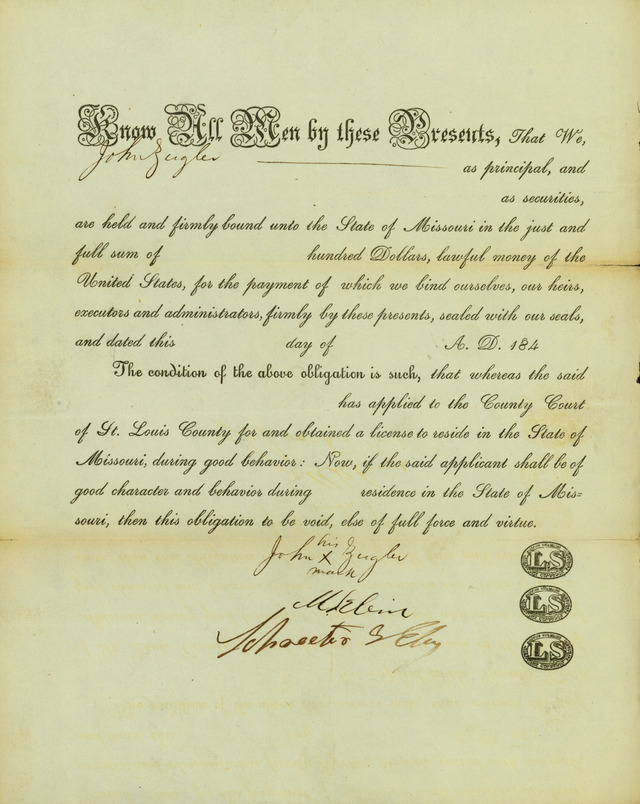 Know All Men by these Presents, That We,
John Zeugler as principal, and
as securities,
are held and firmly bound unto the State of Missouri in the just and
full sum of hundred Dollars, lawful money of the
United States, for the payment of which we bind ourselves, our heirs,
executors and administrators, firmly by these presents, sealed with our seals,
and dated this day of A. D. 184
The condition of the above obligation is such, that whereas the said
has applied to the County Court
of St. Louis County for and obtained a license to reside in the State of
Missouri, during good behavior: Now, if the said applicant shall be of
good character and behavior during residence in the State of Mis=
souri, then this obligation to be void, else of full force and virtue.
his
John X Zeugler
mark
LS
LS
LS